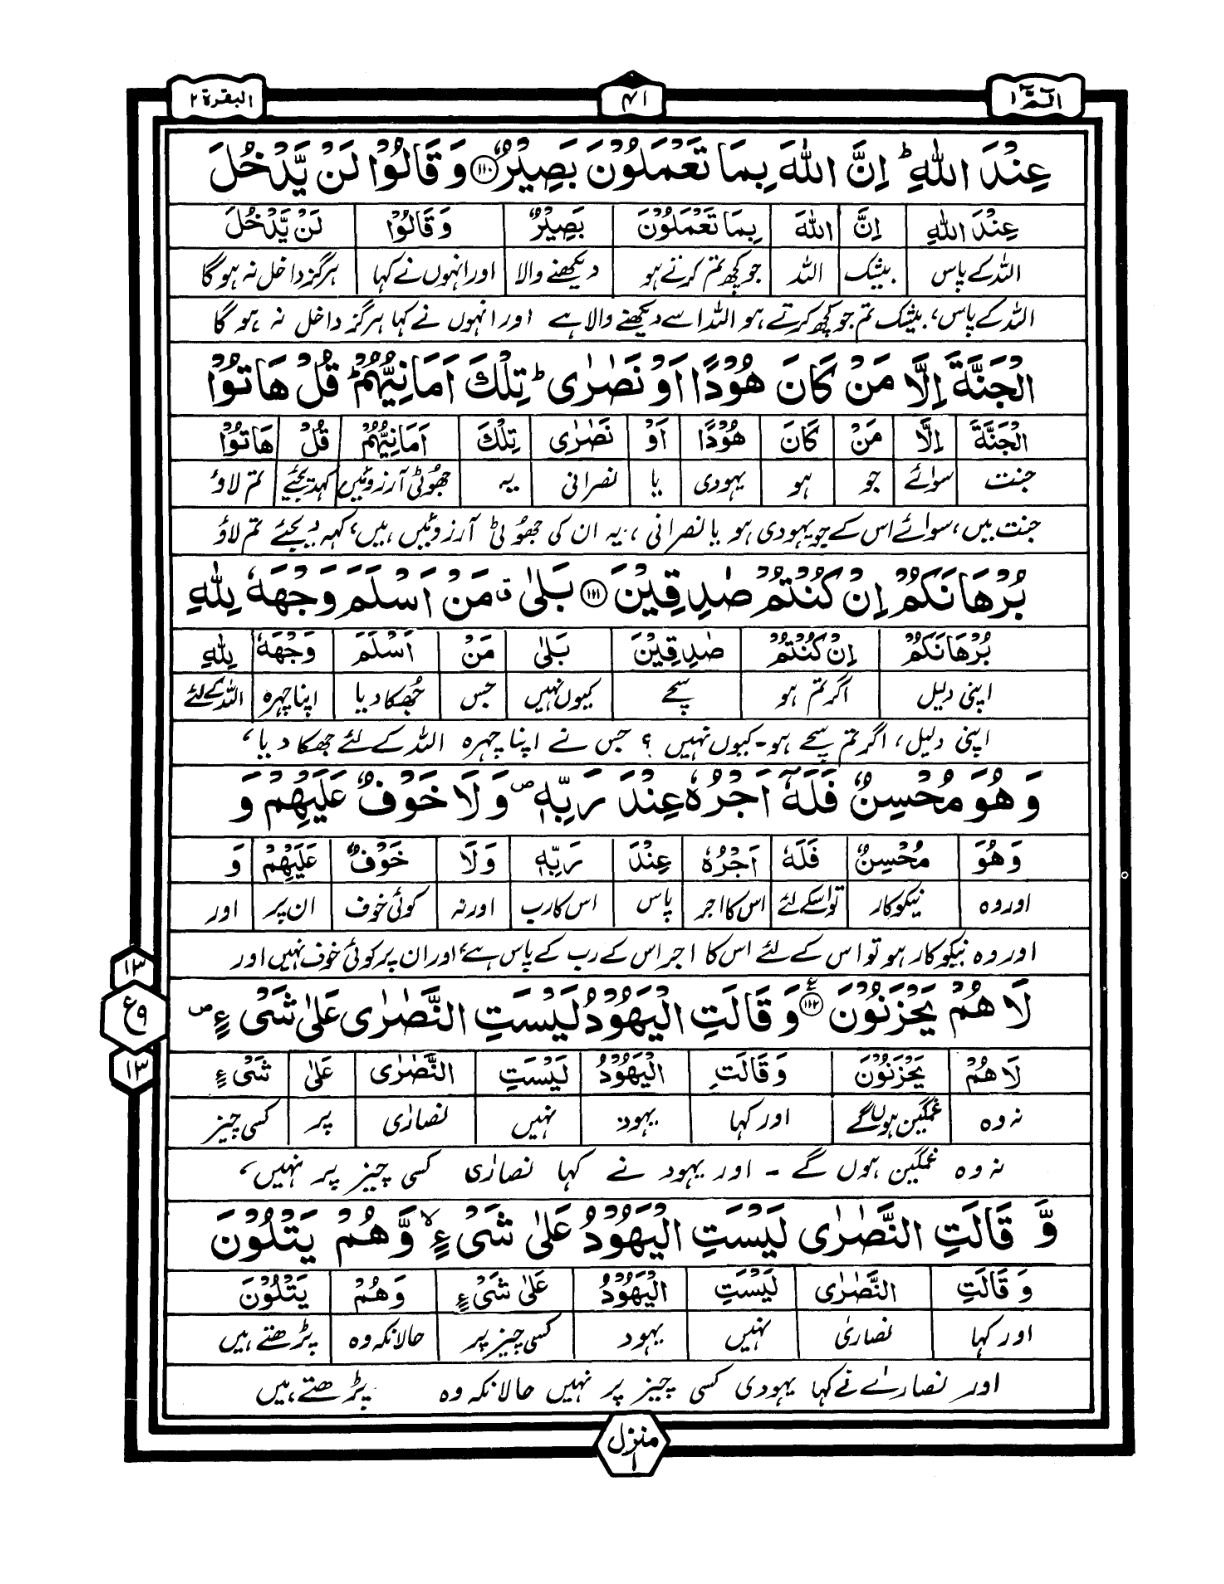 الٓمّٓ ۱
۴۱
البقرة ۲
عِنْدَ اللّٰهِ ؕ اِنَّ اللّٰهَ بِمَا تَعْمَلُوْنَ بَصِيْرٌ ﴿۱۱۰﴾ وَ قَالُوْا لَنْ يَّدْخُلَ
عِنْدَ اللّٰهِ اِنَّ اللّٰهَ بِمَا تَعْمَلُوْنَ بَصِيْرٌ وَ قَالُوْا لَنْ يَّدْخُلَ
اللہ کے پاس بیشک اللہ جو کچھ تم کرتے ہو دیکھنے والا اور انہوں نے کہا ہرگز داخل نہ ہوگا
اللہ کے پاس، بیشک تم جو کچھ کرتے ہو اللہ اسے دیکھنے والا ہے اور انہوں نے کہا ہرگز داخل نہ ہو گا
الْجَنَّةَ اِلَّا مَنْ كَانَ هُوْدًا اَوْ نَصٰرٰى ؕ تِلْكَ اَمَانِيُّهُمْ ؕ قُلْ هَاتُوْا
الْجَنَّةَ اِلَّا مَنْ كَانَ هُوْدًا اَوْ نَصٰرٰى تِلْكَ اَمَانِيُّهُمْ قُلْ هَاتُوْا
جنت سوائے جو ہو یہودی یا نصرانی یہ جھوٹی آرزوئیں کہدیجئے تم لاؤ
جنت میں، سوائے اس کے جو یہودی ہو یا نصرانی، یہ ان کی جھوٹی آرزوئیں ہیں، کہہ دیجئے تم لاؤ
بُرْهَانَكُمْ اِنْ كُنْتُمْ صٰدِقِيْنَ ﴿۱۱۱﴾ بَلٰى ۚ مَنْ اَسْلَمَ وَجْهَهٗ لِلّٰهِ
بُرْهَانَكُمْ اِنْ كُنْتُمْ صٰدِقِيْنَ بَلٰى مَنْ اَسْلَمَ وَجْهَهٗ لِلّٰهِ
اپنی دلیل اگر تم ہو سچے کیوں نہیں جس جھکا دیا اپنا چہرہ اللہ کے لئے
اپنی دلیل، اگر تم سچے ہو۔ کیوں نہیں؟ جس نے اپنا چہرہ اللہ کے لئے جھکا دیا،
وَ هُوَ مُحْسِنٌ فَلَهٗٓ اَجْرُهٗ عِنْدَ رَبِّهٖ ۪ وَ لَا خَوْفٌ عَلَيْهِمْ وَ
وَ هُوَ مُحْسِنٌ فَلَهٗ اَجْرُهٗ عِنْدَ رَبِّهٖ وَلَا خَوْفٌ عَلَيْهِمْ وَ
اور وہ نیکوکار تو اسکے لئے اس کا اجر پاس اس کا رب اور نہ کوئی خوف ان پر اور
اور وہ نیکوکار ہو تو اس کے لئے اس کا اجر اس کے رب کے پاس ہے، اور ان پر کوئی خوف نہیں اور
۱۳
ع ۹
۱۳
لَا هُمْ يَحْزَنُوْنَ ﴿۱۱۲﴾ وَ قَالَتِ الْيَهُوْدُ لَيْسَتِ النَّصٰرٰى عَلٰى شَىْءٍ ۪
لَا هُمْ يَحْزَنُوْنَ وَ قَالَتِ الْيَهُوْدُ لَيْسَتِ النَّصٰرٰى عَلٰى شَىْءٍ
نہ وہ غمگین ہوں گے اور کہا یہود نہیں نصاریٰ پر کسی چیز
نہ وہ غمگین ہوں گے ۔ اور یہود نے کہا نصاریٰ کسی چیز پر نہیں،
وَّ قَالَتِ النَّصٰرٰى لَيْسَتِ الْيَهُوْدُ عَلٰى شَىْءٍ ۙ وَّ هُمْ يَتْلُوْنَ
وَ قَالَتِ النَّصٰرٰى لَيْسَتِ الْيَهُوْدُ عَلٰى شَىْءٍ وَ هُمْ يَتْلُوْنَ
اور کہا نصاریٰ نہیں یہود کسی چیز پر حالانکہ وہ پڑھتے ہیں
اور نصاریٰ نے کہا یہودی کسی چیز پر نہیں حالانکہ وہ پڑھتے ہیں
منزل ۱